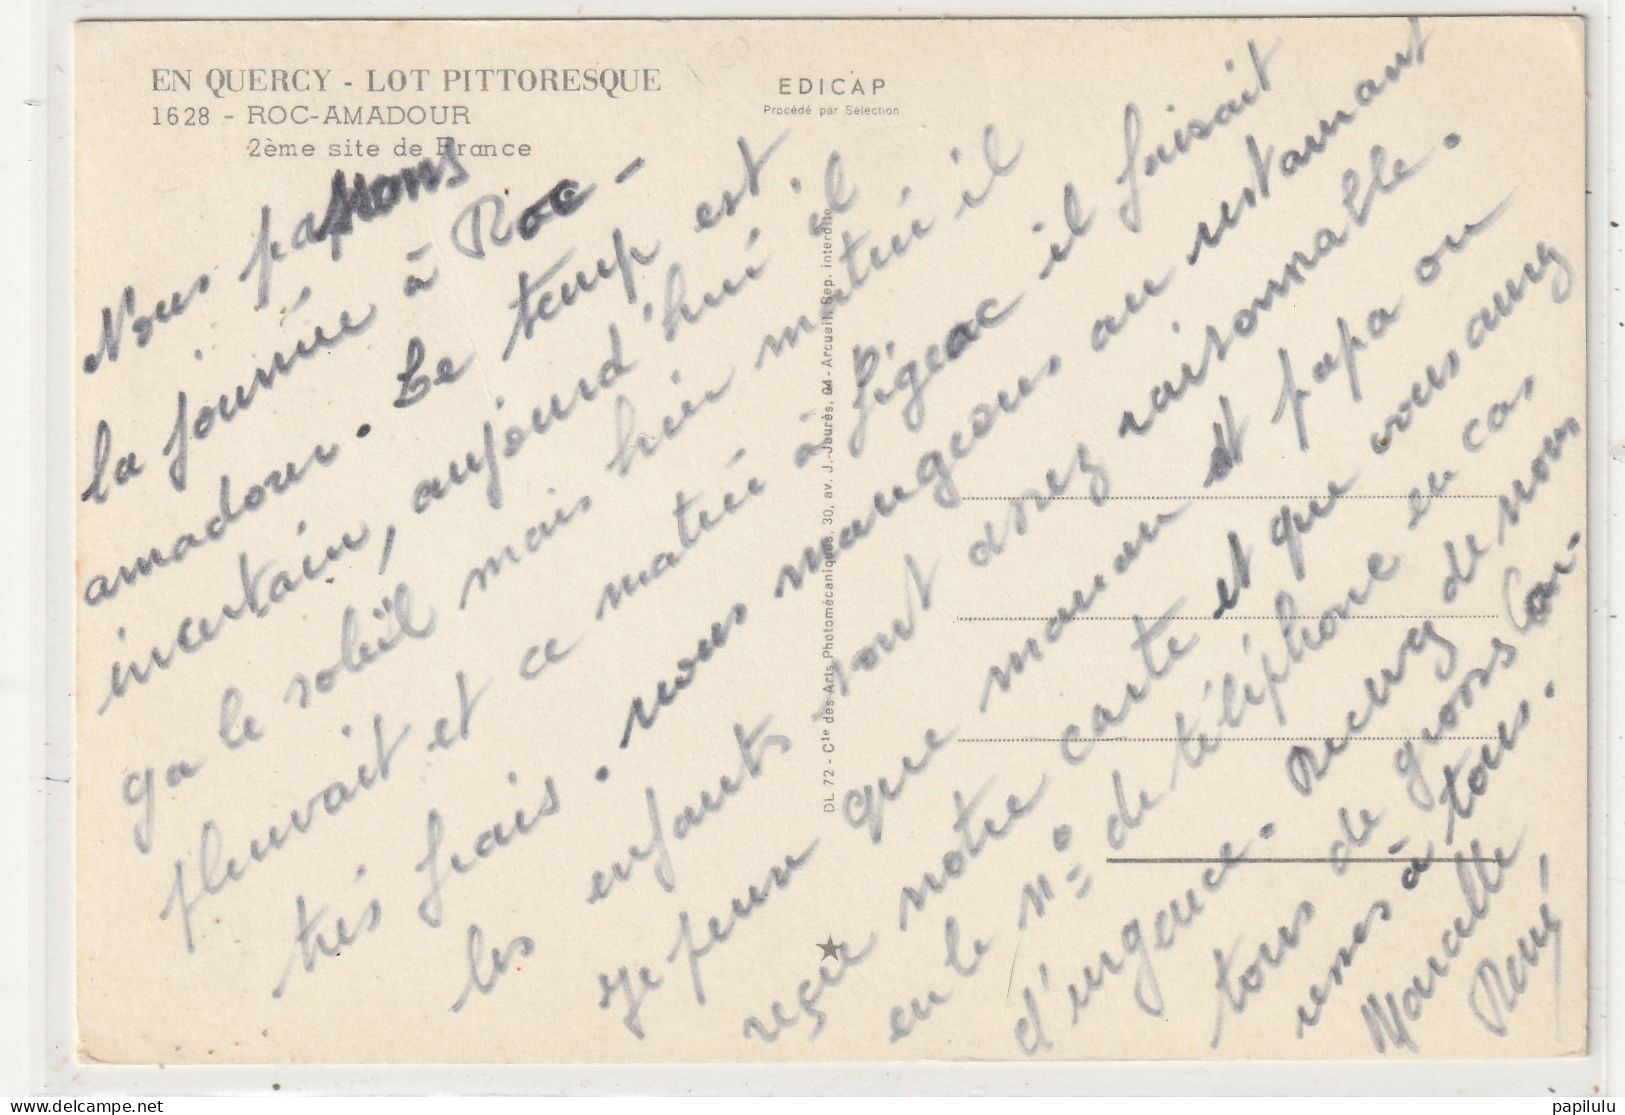 EN QUERCY - LOT PITTORESQUE
1628 - ROC-AMADOUR
2ème site de France
EDICAP
Procédé par Sélection
Nous passons
la journée à Roc-
amadour. Le temp est
incertain, aujourd'hui il
ya le soleil mais hier matin il
pleuvait et ce matin à figeac il faisait
très frais. nous mangeons au restaurant
les enfants sont assez raisonnable.
je pense que maman et papa on
reçue notre carte et que vous aurez
eu le n° de téléphone en cas
d'urgence. Recevez de nous
tous de gross Car-
esses à tous.
Marcelle
René
DL 72 - Cie des Arts Photomécaniques, 30, av. J.-Jaurès, 94 - Arcueil. Rep. interdite
papilulu